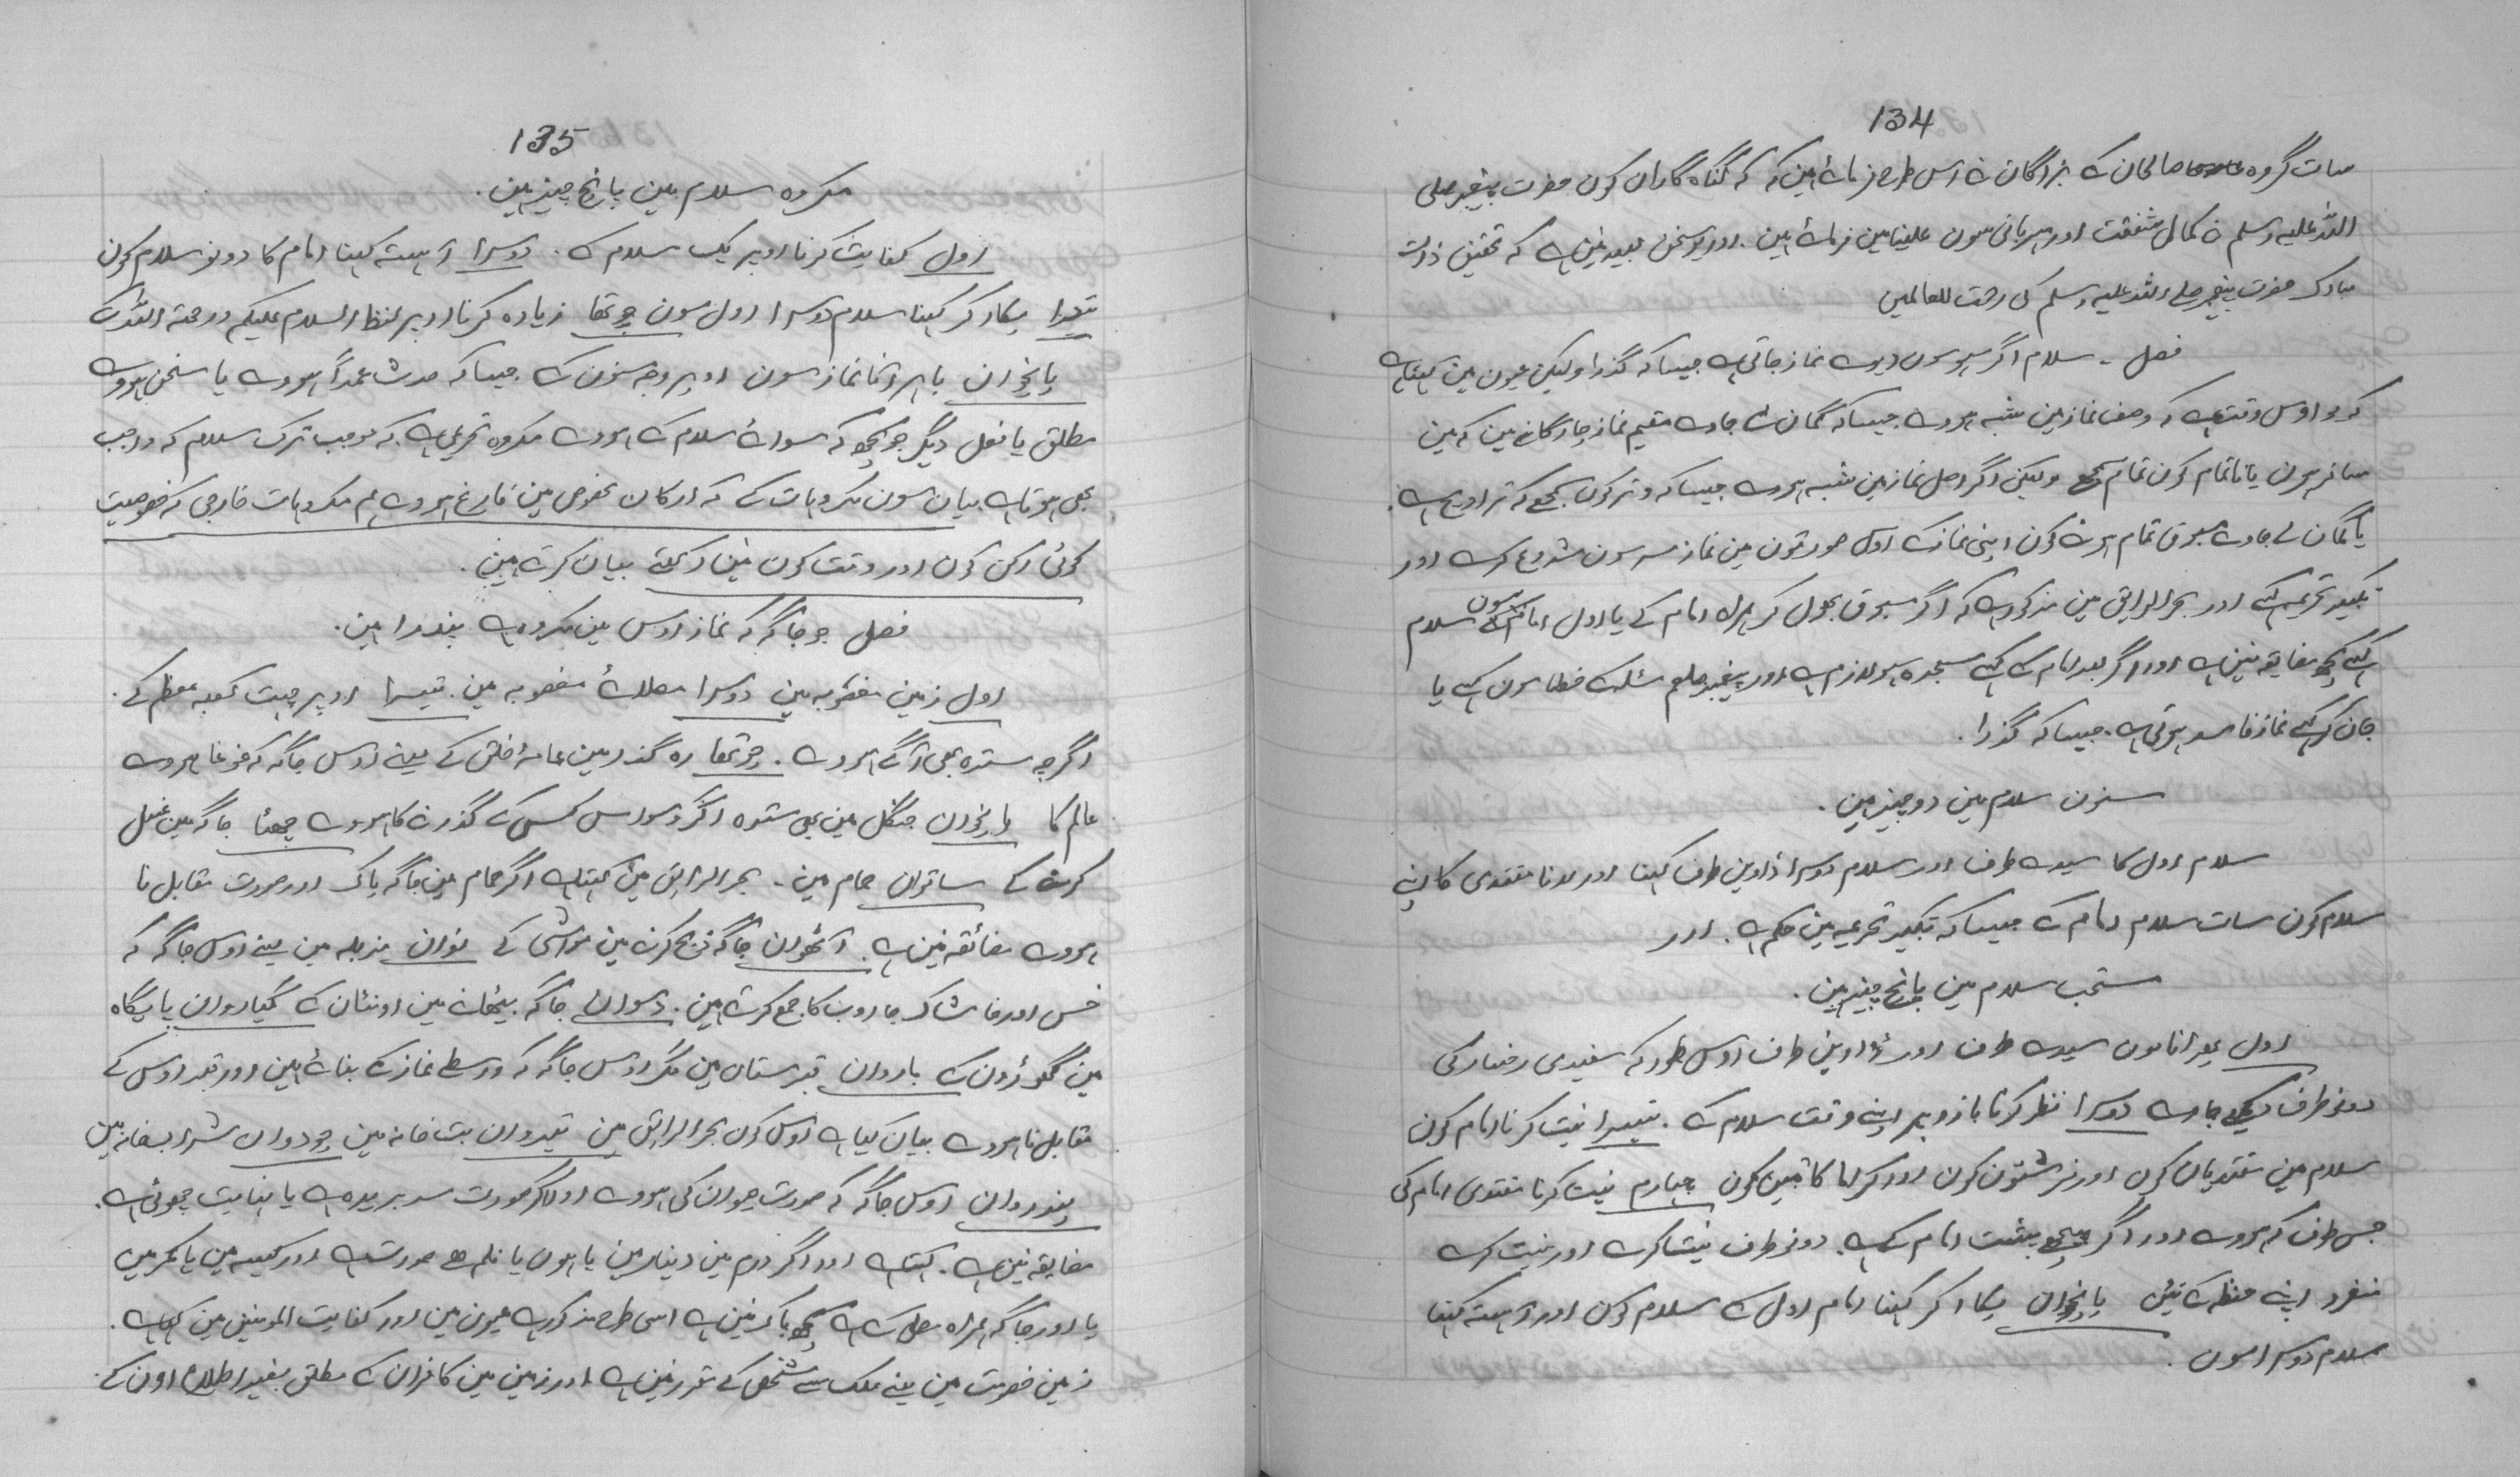 134
سات گروہ صالحان کے بزرگان نے اس طرح فرمائے ہین کہ کہ گناہ گاران کون حضرت پیغمبر صلی
اللہ علیہ وسلم نے کمال شفقت اور مہربانی سون علینا مین فرمائے ہین. اور یو سخن بعید نین ہے کہ تحقیق ذات
مبارک حضرت پیغمبر صلی اللہ علیہ وسلم کی رحمت للعالمین
فصل ۔ سلام اگر سہو سون دیوے نماز جاتی ہے جیسا کہ گذرا ولیکن عیون مین کہتا ہے
کہ یو اوس وقت ہے کہ وصف نماز مین شبہ ہووے جیسا کہ گمان لے جاوے مقیم نماز چارگانے مین کہ مین
مسافر ہون یا ناتمام کون تمام سمجھے ولیکن اگر اصل نماز مین شبہ ہووے جیسا کہ وتر کون سمجھے کہ تراویح ہے.
یا گمان لے جاوے مسبوق تمام ہونے کون اپنی نماز کے اول صورتون مین نماز سر سون شروع کرے اور
تکبیر تحریمہ کہے اور بحر الرایق مین مذکور ہے کہ اگر مسبوق بھول کر ہمراہ امام کے یا اول امام سون سلام
کہے کچھ مضایقہ نین ہے اور اگر بعد امام کے کہے سجدہ سہو لازم ہے اور پیغمبر صلعم خطا سون کہے یا
جان کر کہے نماز فاسد ہوتی ہے. جیسا کہ گذرا.
سنون سلام مین دو چیز ہین.
سلام اول کا سیدے طرف اور سلام دوسرا ڈاوین طرف کہنا اور لانا مقتدی کا اپنے
سلام کون سات سلام امام کے جیسا کہ تکبیر تحریمہ مین حکم ہے. اور
مستحب سلام مین پانچ چیز ہین.
اول پھرانا مون سیدے طرف اور ڈاوین طرف اوس طور کہ سفیدی رخسار کی
دونو طرف دیکھے جاوے دوسرا نظر کرنا بازو پر اپنے وقت سلام کے. تیسرا نیت کرنا امام کون
سلام مین مقتدیان کون اور فرشتون کون اور کراما کاتبین کون چہارم نیت کرنا مقتدی امام کی
جس طرف کہ ہووے اور اگر پیچھے پشت امام کے ہے. دونو طرف نیت کرے اور نیت کرے
منفرد اپنے حفظہ کے تیئں پانچوان پکار کر کہنا امام اول کے سلام کون اور آہستہ کہنا
سلام دوسرا سون.
135
مکروہ سلام مین پانچ چیز ہین.
اول کفایت کرنا اوپر یک سلام کے. دوسرا آہستہ کہنا امام کا دونو سلام کون
تیسرا پکار کر کہنا سلام دوسرا اول سون چوتھا زیادہ کرنا اوپر لفظ السلام علیکم ورحمتہ اللہ کے
پانچوان باہر آنا نماز سون اوپر وجہ سنون کے جیسا کہ حدث عمداً ہووے یا سخن ہووے
مطلق یا فعل دیگر جو کچھ کہ سوائے سلام کے ہووے مکروہ تحریمی ہے. کہ موجب ترک سلام کہ واجب
بھی ہوتا ہے بیان سون مکروہات کے کہ ارکان مخصوص مین فارغ ہووے ہم مکروہات خارجی کہ خصوصیت
کوئی رکن کون اور وقت کون نین رکھتے بیان کرتے ہین.
فصل جو جاگہ کہ نماز اوس مین مکروہ ہے پندرا ہین.
اول زمین مغصوبہ مین دوسرا مصلائے مغصوبہ مین. تیسرا اوپر چھت کعبہ معظم کے.
اگرچہ سترہ بھی آگے ہووے. چوتھا رہ گذر مین عامہ خلق کے یعنے اوس جاگہ کہ غوغا ہووے
عالم کا پانچوان جنگل مین بھی سترہ اگر وسواس کسی کے گذرنے کا ہووے چھٹا جاگہ مین غسل
کرنے کے ساتوان حمام مین. بحر الرایق مین کہتا ہے اگر حمام مین جاگہ پاک اور صورت مقابل نا
ہووے مضائقہ نین ہے. آٹھوان جاگہ ذبح کرنے مین مواشی کے نوان مزبلہ مین یعنے اوس جاگہ کہ
خس اور خاشاک جاروب کا جمع کرتے ہین. دسوان جاگہ بیٹھانے مین اونٹان کے گیاروان پایگاہ
مین گھوڑون کے باروان قبرستان مین مگر اوس جاگہ کہ واسطے نماز کے بنائے ہین اور قبر اوس کے
مقابل نا ہووے بیان کیا ہے اوس کون بحر الرایق مین تیروان بتخانہ مین چودوان شراب خانہ مین
پندروان اوس جاگہ کہ صورت حیوان کی ہووے اور اگر صورت سر بریدہ ہے یا نہایت چھوٹی ہے.
مضایقہ نین ہے. کہتا ہے اور اگر درم مین دینار مین یا ہون یا فلم صورت ہے اور کیسہ مین یا کمر مین
یا اور جاگہ ہمراہ مصلی کے ہے کچھ باک نین ہے اسی طرح مذکور ہے عیون مین اور کفایت المومنین مین کہا ہے.
زمین خصومت مین یعنے ملک شخص کے مقرر نین ہے اور زمین مین کافران کے مطلق بغیر اطلاع اون کے.